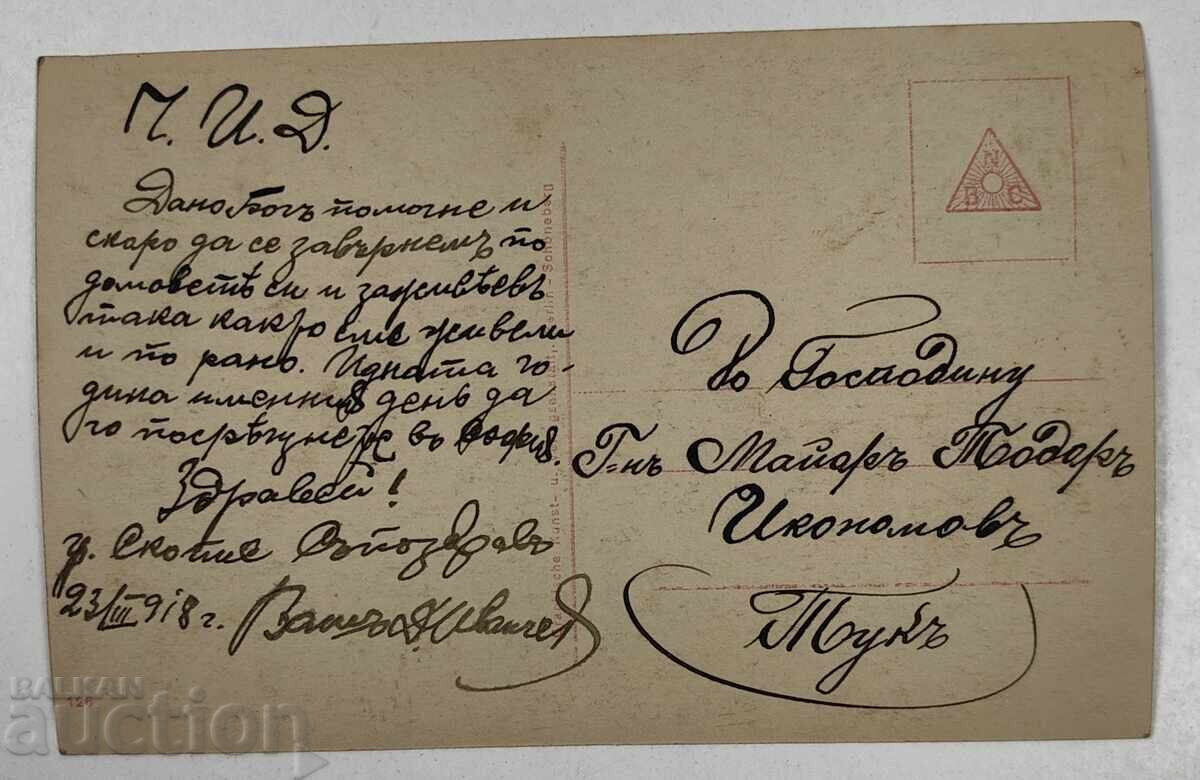 Ч. И. Д.
Дано Богъ помогне и
скаро да се завърнемъ по
домоветѣ си и заживѣевъ
така какро сме живели
и по рано. Идната го-
дина именния день да
го посрѣщнеме во София.
Здравей!
гр. Скопие Съпоздравъ
23/III 918 г. Вашъ Иванчев
Во Господину
Г-нъ Майаръ Тодаръ
Икономовъ
Тукъ
N
B C
126
BALKAN
auction